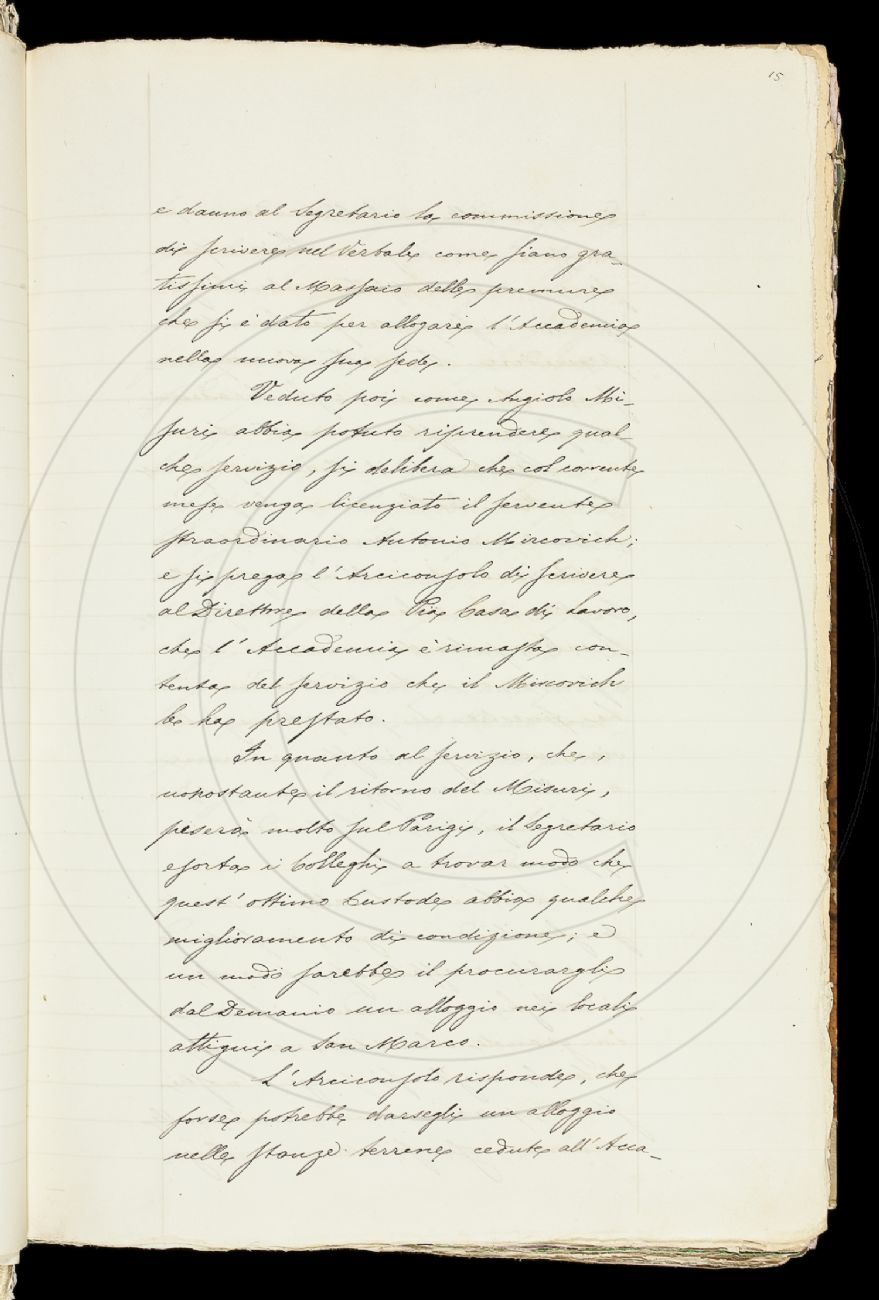 15
e danno al Segretario la commissione
di scrivere nel Verbale come siano gra-
tissimi al Massaio delle premure
che si è dato per allogare l'Accademia
nella nuova sua sede.
Veduto poi come Angiolo Mi-
suri abbia potuto riprendere qual-
che servizio, si delibera che col corrente
mese venga licenziato il servente
straordinario Antonio Mircovich;
e si prega l'Arciconsolo di scrivere
al Direttore della Pia Casa di Lavoro,
che l'Accademia è rimasta con-
tenta del servizio che il Mircovich
le ha prestato.
In quanto al servizio, che,
nonostante il ritorno del Misuri,
peserà molto sul Parigi, il Segretario
esorta i Colleghi a trovar modo che
quest'ottimo Custode abbia qualche
miglioramento di condizione; e
un modo sarebbe il procurargli
dal Demanio un alloggio nei locali
attigui a San Marco.
L'Arciconsolo risponde, che
forse potrebbe darsegli un alloggio
nelle stanze terrene cedute all'Acca-